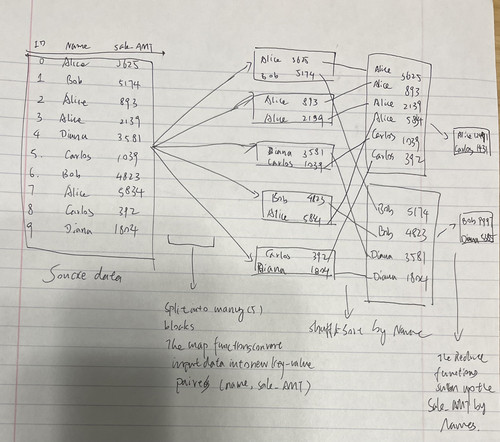 ID Name sale_AMT
0 Alice 3625
1 Bob 5174
2 Alice 893
3 Alice 2139
4 Diana 3581
5. Carlos 1039
6. Bob 4823
7 Alice 5834
8 Carlos 392
9 Diana 1804
Source data
Split into many(5)
blocks
The map functions convert
input data into new key-value
paires (name, sale_AMT)
Alice 3625
Bob 5174
Alice 893
Alice 2139
Diana 3581
Carlos 1039
Bob 4823
Alice 5834
Carlos 392
Diana 1804
Alice 3625
Alice 893
Alice 2139
Alice 5834
Carlos 1039
Carlos 392
Bob 5174
Bob 4823
Diana 3581
Diana 1804
by Name
Alice
Carlos 1431
Bob
Diana
The Reduce
functions
up the
Sale_AMT by
Names.